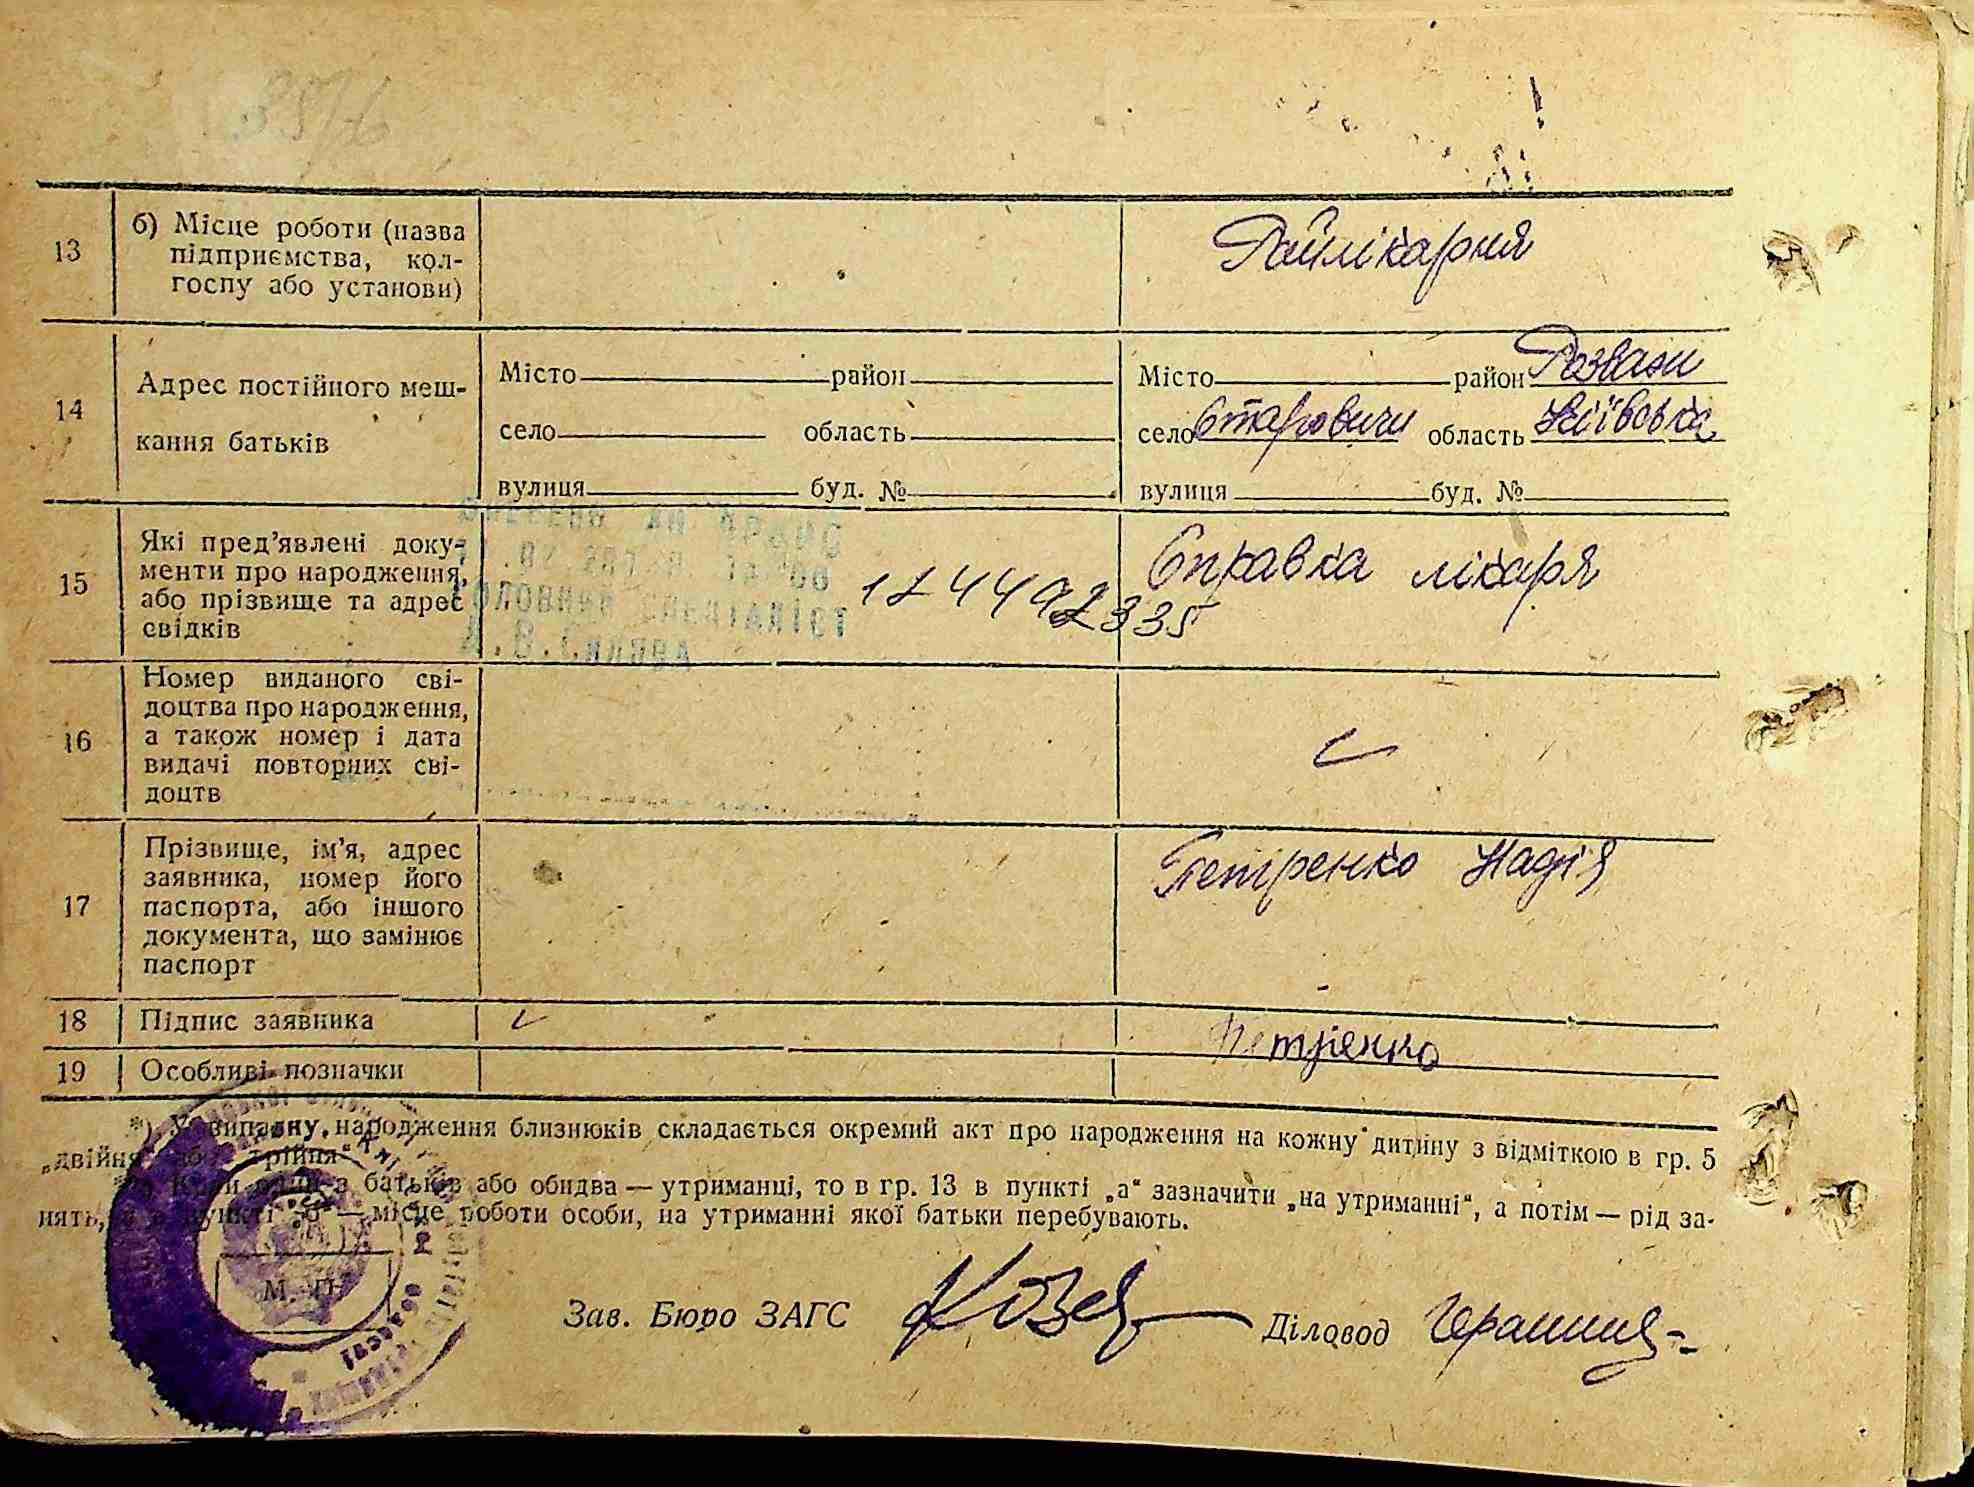 3576
13
б) Місце роботи (назва
підприємства, кол-
госпу або установи)
Райлікарня
14
Адрес постійного меш-
кання батьків
Місто район
село область
вулиця буд. №
Місто район Розваж
село Старовичи область Київська
вулиця буд. №
15
Які пред’явлені доку-
менти про народження,
або прізвище та адрес
свідків
1244492335
Справка лікаря
16
Номер виданого сві-
доцтва про народження,
а також номер і дата
видачі повторних сві-
доцтв
17
Прізвище, ім’я, адрес
заявника, номер його
паспорта, або іншого
документа, що замінює
паспорт
Петренко Надія
18 Підпис заявника
Петренко
19 Особливі позначки
*) У випадку народження близнюків складається окремий акт про народження на кожну дитину з відміткою в гр. 5
„двійня“ або „трійня“
Коли один з батьків або обидва — утриманці, то в гр. 13 в пункті „а“ зазначити „на утриманні“, а потім — рід за-
нять, а в пункті „б“ — місце роботи особи, на утриманні якої батьки перебувають.
М. П.
Зав. Бюро ЗАГС
Діловод